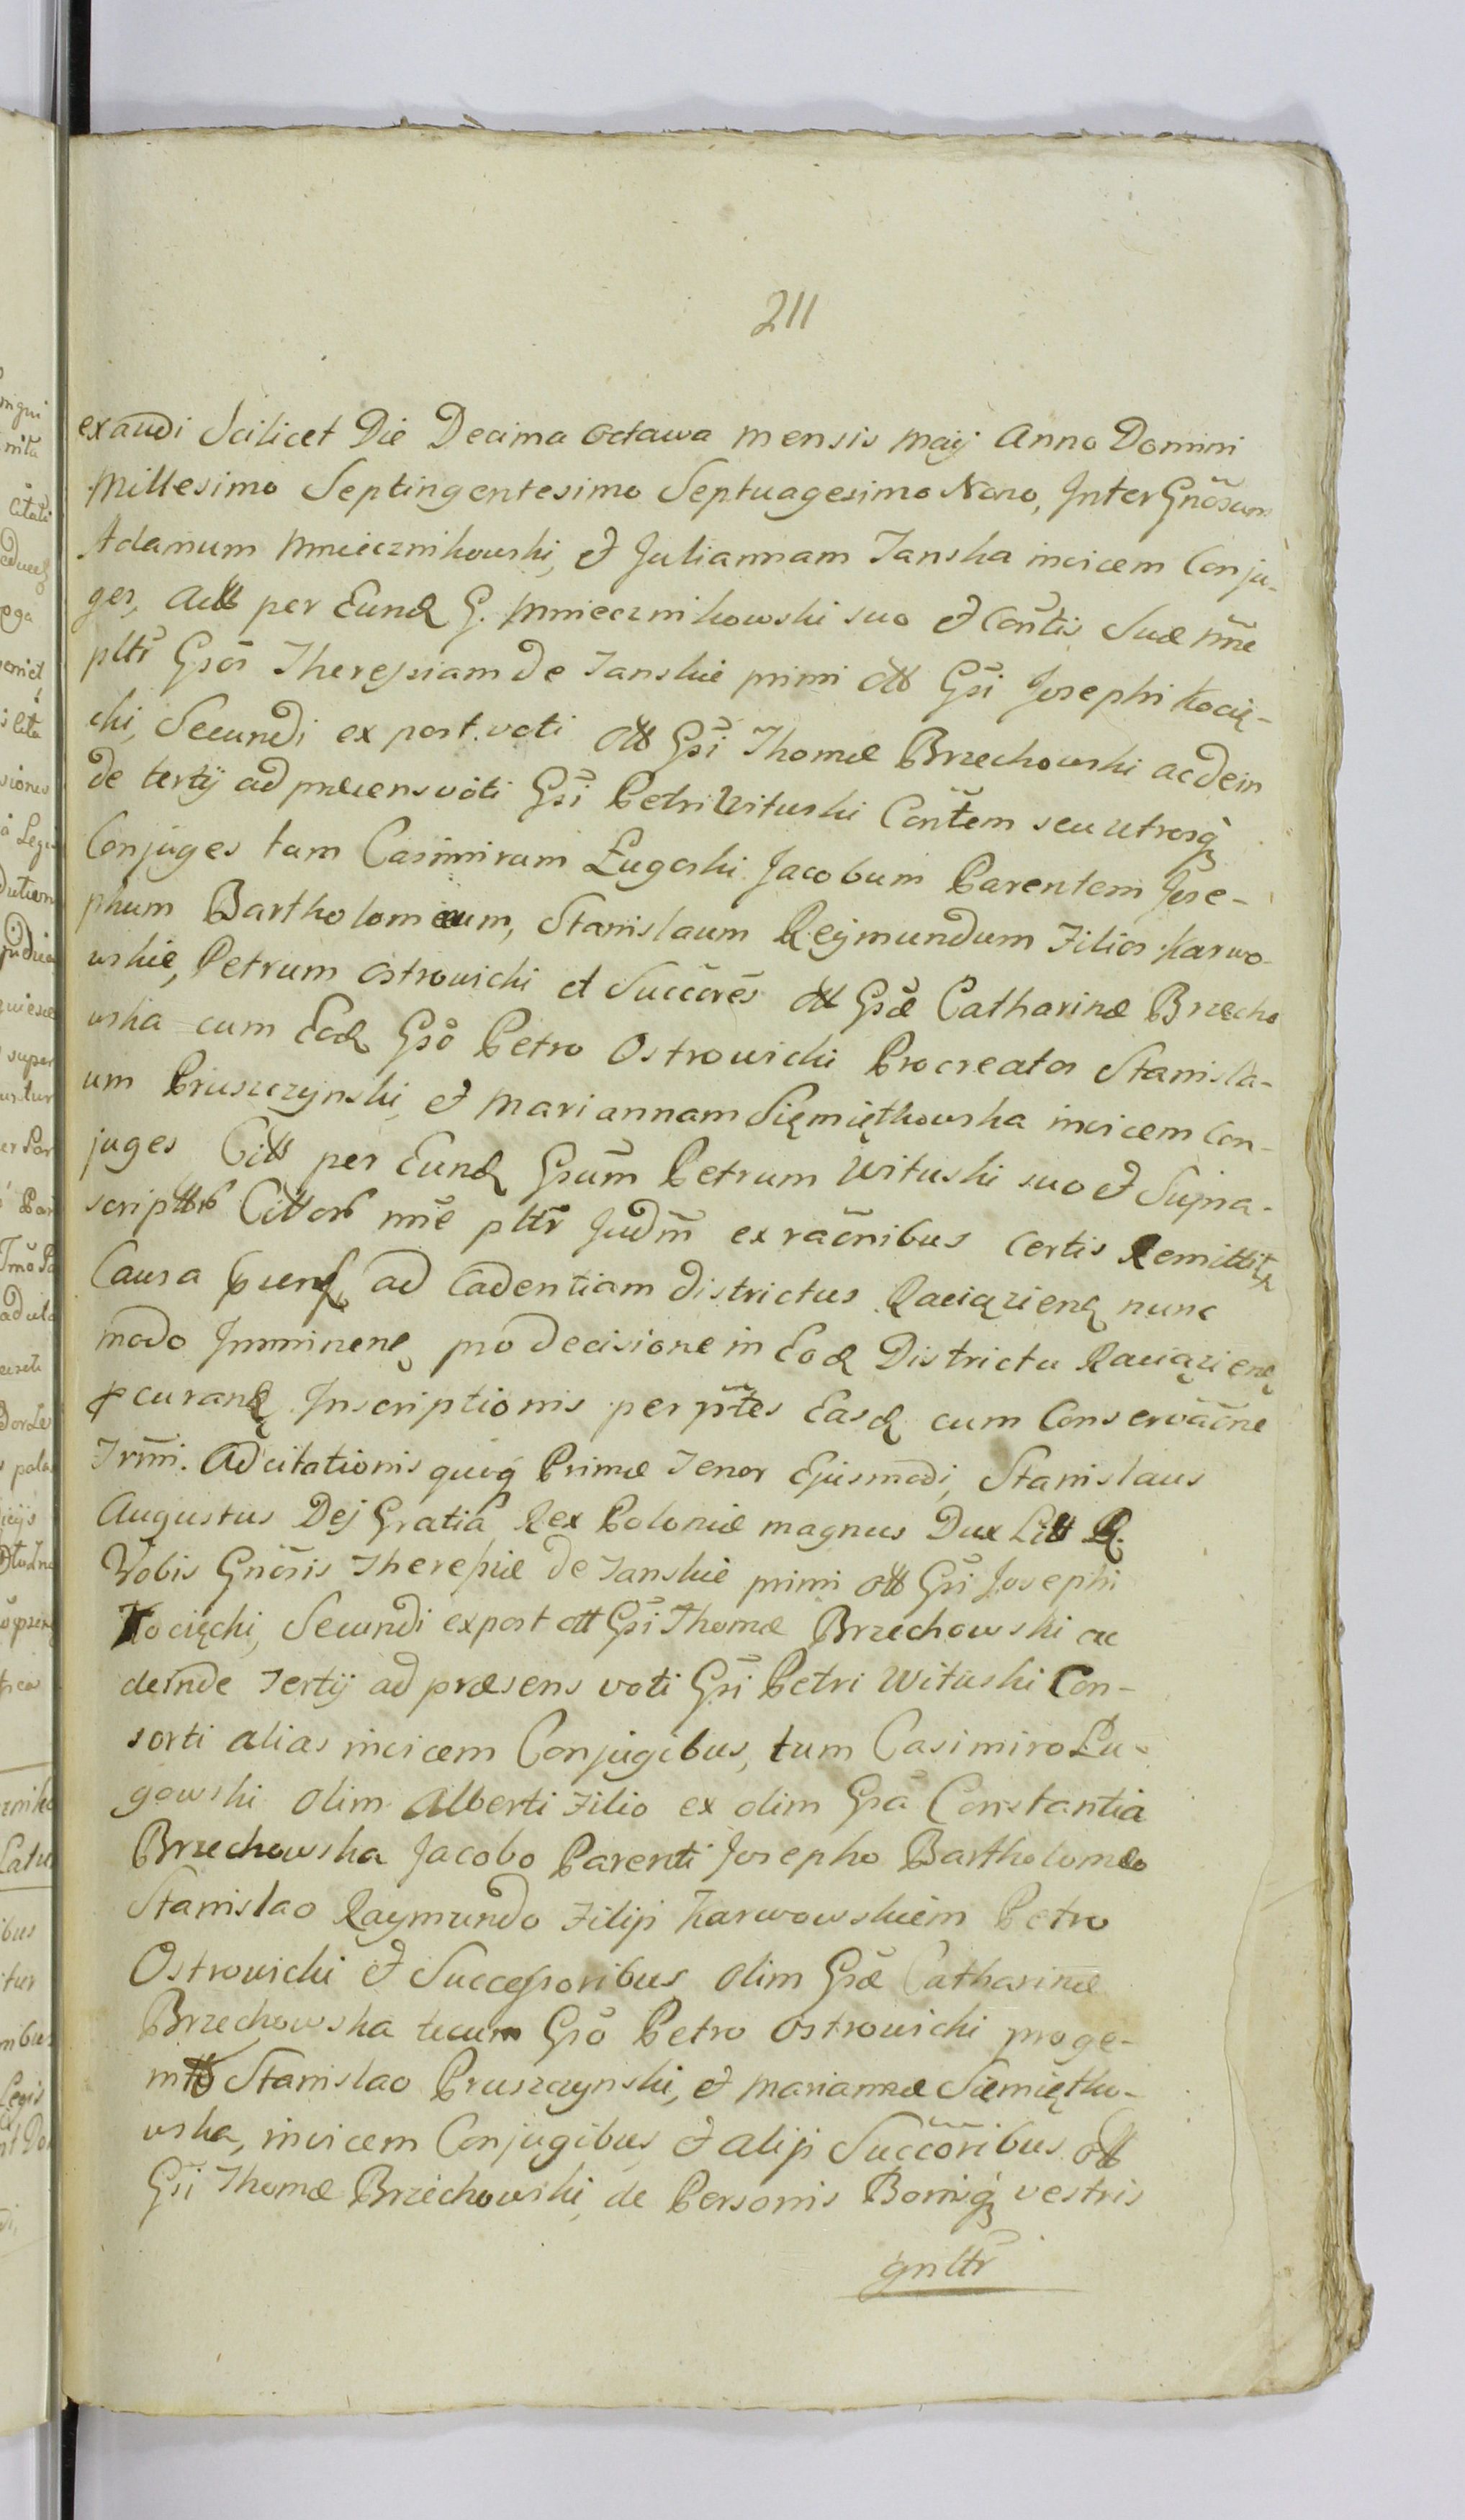 211
exaudi Scilicet Die Decima Octawa mensis Maij Anno Domini
Millesimo Septingentesimo Septuagesimo Nono, Inter Gnõsum
Adamum Mniecznikowski, et Juliannam Janska invicem Conju-
ges, Actt per Eund G. Mniecznikowski suo et Contis Suæ nne
pltr Gsõs Theressiam de Janskie primi ott Gsi Josephi Kocię-
cki, Secundi ex post voti ott Gsi Thomæ Brzechowski ac dein
de tertij ad præsens voti Gsi Petri Wituski Contem seu utrosq
Conjuges tam Casimirum Ługoski Jacobum Parentem Jose-
phum Bartholomæum, Stanislaum Reymundum Filios Karwo-
wskie, Petrum Ostrowicki et Succores ott Gsæ Catharinæ Brzecho
wska cum Eod Gso Petro Ostrowicki Procreatos Stanisla-
um Pruszczynski, et Mariannam Sięmiętkowska invicem Con-
juges Citt per Eund Gsum Petrum Wituski suo et Supra-
scripttrb Cittorb nne pltr Judm ex racnibus certis Remittit
Causa præns ad Cadentiam districtus Raciązien nunc
modo Imminen pro decisione in Eod Districtu Raciązien
pcurand Inscriptionis per ptes Easd cum Conservacne
Trmi. Adcitationis quoq Primæ Tenor Ejusmodi, Stanislaus
Augustus Dej Gratia Rex Poloniæ magnus Dux Litt R.
Vobis Gnõsis Theressiæ de Janskie primi ott Gsi Josephi
Kocięcki, Secundi expost ott Gsi Thomæ Brzechowski ac
deinde Tertij ad præsens voti Gsi Petri Wituski Con-
sorti alias invicem Conjugibus, tum Casimiro Łu-
gowski olim Alberti Filio ex olim Gsa Constantia
Brzechowska Jacobo Parenti Josepho Bartholomæo
Stanislao Raymundo Filijs Karwowskiem Petro
Ostrowicki et Successoribus olim Gsæ Catharinæ
Brzechowska tecum Gso Petro Ostrowicki proge-
nitt Stanislao Pruszczynski, et Mariannæ Siemiętko-
wska, invicem Conjugibus, et alijs Succoribus ott
Gsi Thomæ Brzechowski, de Personis Bonisq vestris
gnltr